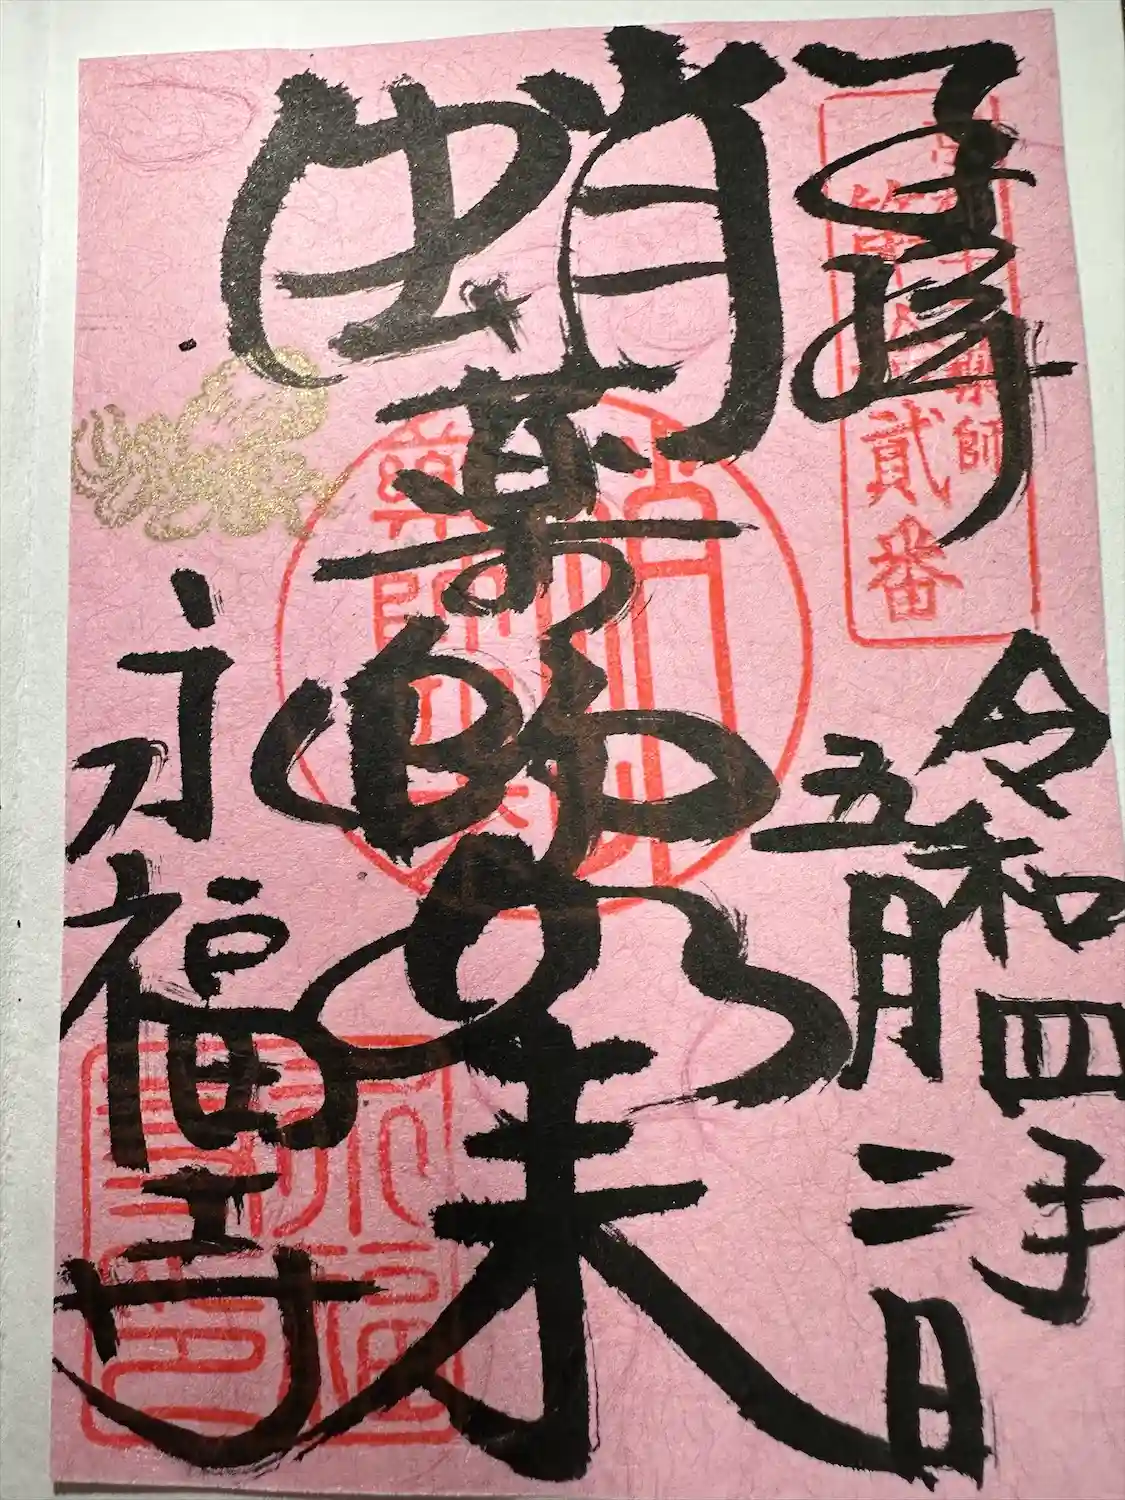 奉拝
薬師
貳番
令和四年
五月二日
蛸薬師如来
永福寺